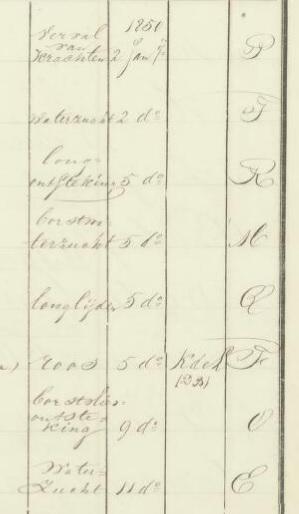 1850
verval
van
Krachten 2 Jan r̃ P
waterzucht 2 do T
long-
ontsteking 5 do R
borstwa-
terzucht 5 do M
longlijder 5 do
roos 5 do K d L F
(DB)
borstvlies-
ontste-
king 9 do O
Water-
zucht 11 do E